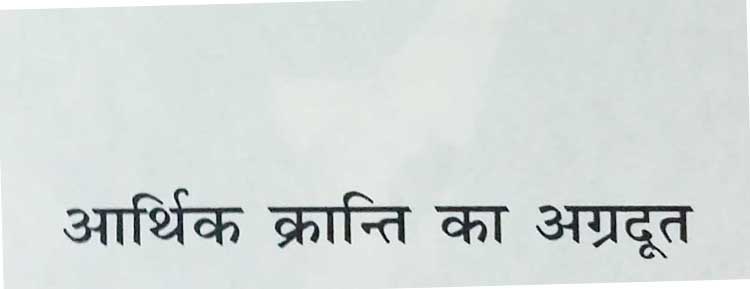 आर्थिक क्रान्ति का अग्रदूत